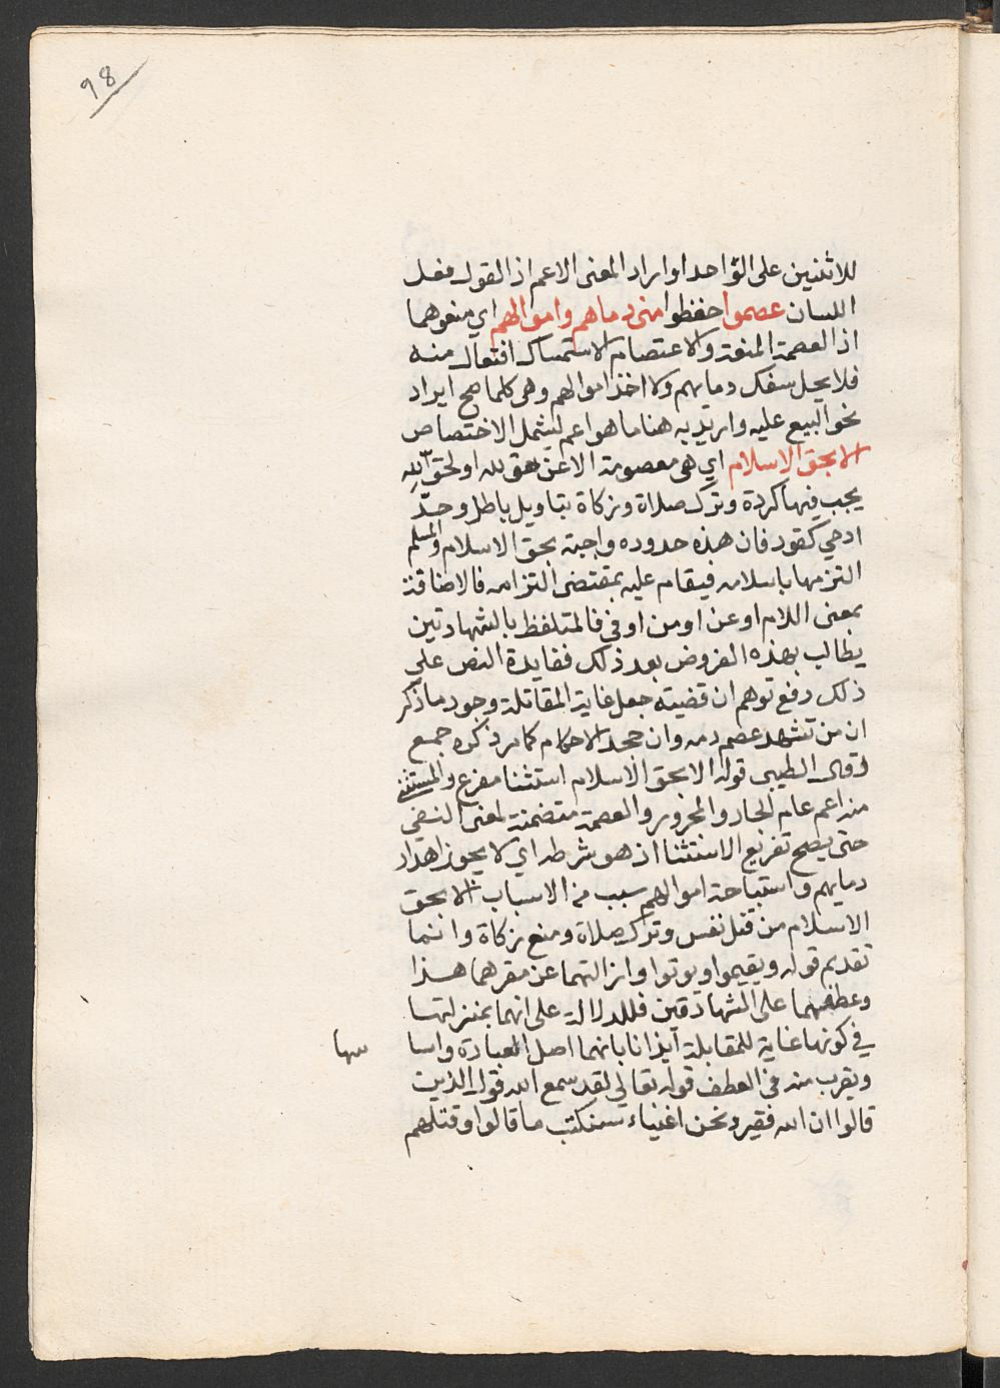 98
للاثنين على الواحد اواراد المعنى الاعم اذ القول فعل
اللسان عصموا حفظوا مني دماهم واموالهم اي منعوهما
اذ العصمة المنعة والاعتصام الاستمساك افتعال منه
فلا يحل سفك دمايهم ولا اخذ اموالهم وهي كلما صح ايراد
نحو البيع عليه واريد به هنا ما هو اعم ليشمل الاختصاص
الا بحق الاسلام اي هي معصومة الا عن حق لله او لحق
يجب فيها كردة وترك صلاة وزكاة بتاويل باطل وحد
ادمي كقود فان هذه حدوده واجبة بحق الاسلام والمسلم
التزمها باسلامه فيقام عليه بمقتضى التزامه فالاضافة
بمعنى اللام او عن او من او في فالمتلفظ بالشهادتين
يطالب بهذه الفروض بعد ذلك ففايدة النص على
ذلك دفع توهم ان قضيته جعل غاية المقاتلة وجود ما ذكر
ان من تشهد عصم دمه وان جحد الاحكام كما مر ذكره جمع
وقال الطيبي قوله الا بحق الاسلام استثنا مفرغ والمستثنى
منه اعم عام الجار والمجرور والعصمة متضمنة لمعنى النفي
حتى يصح تفريع الاستثنا اذ هو شرطه اي لا يجوز اهدار
دمايهم واستباحة اموالهم بسبب من الاسباب الا بحق
الاسلام من قتل نفس وترك صلاة ومنع زكاة وانما
تقديم قوله ويقيموا ويوتوا وازالتهما عن مقرهما هذا
وعطفهما على الشهادتين فللدلالة على انهما بمنزلتها
في كونها غاية للمقابلة ايذانا بانهما اصل العبادة واسا سها
ويقرب منه في العطف قوله تعالى لقد سمع الله قول الذين
قالوا ان الله فقير ونحن اغنياء سنكتب ما قالوا وقتلهم